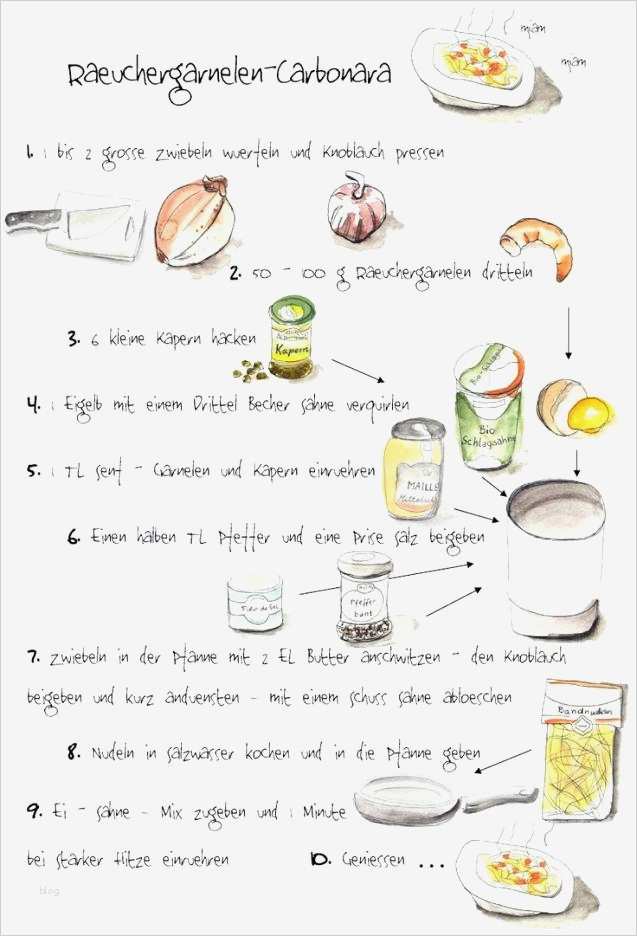 miam
miam
Raeuchergarnelen-Carbonara
1. 1 bis 2 grosse zwiebeln wuerfeln und Knoblauch pressen
2. 50 - 100 g Raeuchergarnelen dritteln
3. 6 kleine Kapern hacken
Kapern
4. 1 Eigelb mit einem Drittel Becher sahne verquirlen
Bio-Schlagsahne
Bio
Schlagsahne
5. 1 TL senf - Garnelen und Kapern einruehren
MAILLE
6. Einen halben TL Pfeffer und eine Prise salz beigeben
Fleur de Sel
Pfeffer
bunt
7. zwiebeln in der Pfanne mit 2 EL Butter anschwitzen - den Knoblauch
beigeben und kurz anduensten - mit einem schuss sahne abloeschen
Bandnudeln
8. Nudeln in salzwasser kochen und in die Pfanne geben
9. Ei - sahne - Mix zugeben und 1 Minute
bei starker Hitze einruehren
10. Geniessen ...
blog